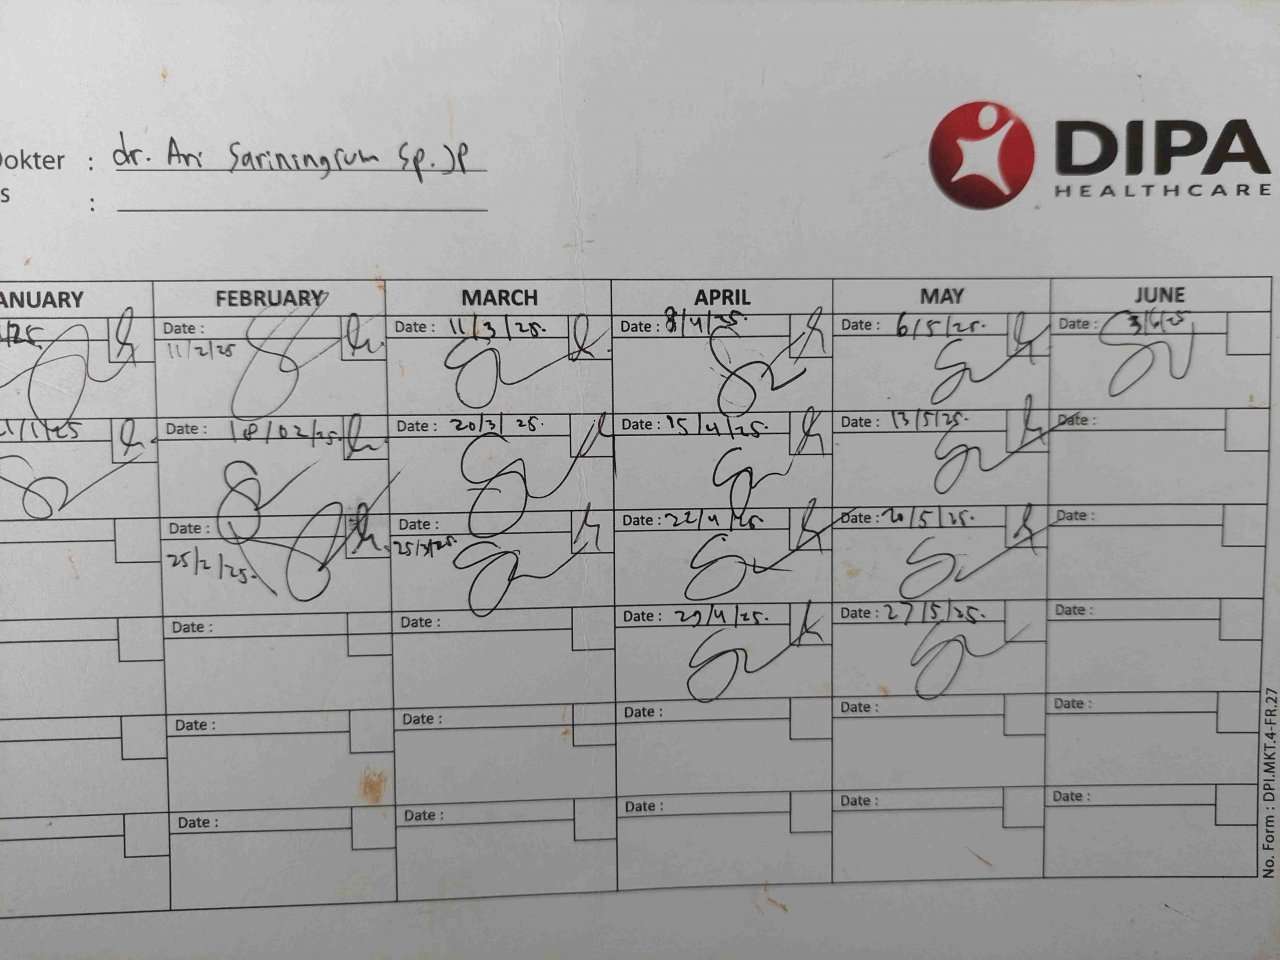 Dokter : dr. Ari Sariningrum Sp.JP
s :
DIPA
HEALTHCARE
ANUARY FEBRUARY MARCH APRIL MAY JUNE
/25 Date : 11/2/25 Date : 11/3/25. Date : 8/4/25. Date : 6/5/25. Date : 3/6/25
21/1/25 Date : 18/02/25. Date : 20/3/25. Date : 15/4/25. Date : 13/5/25. Date :
Date : 25/2/25. Date : 25/3/25. Date : 22/4/25 Date : 20/5/25. Date :
Date : Date : Date : 29/4/25. Date : 27/5/25. Date :
Date : Date : Date : Date : Date :
Date : Date : Date : Date : Date :
No. Form : DPI.MKT.4-FR.27